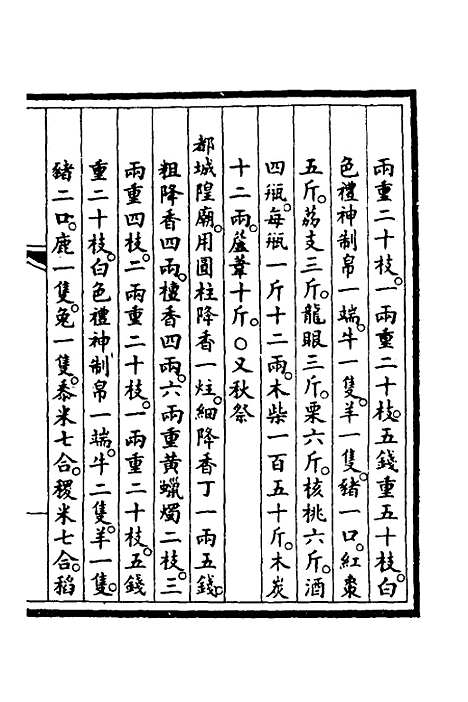 兩重二十枝。一兩重二十枝。五錢重五十枝。白
色禮神制帛一端。牛一隻。羊一隻。豬一口。紅棗
五斤。荔支三斤。龍眼三斤。栗六斤。核桃六斤。酒
四瓶。每瓶一斤十二兩。木柴一百五十斤。木炭
十二兩。蘆葦十斤。○又秋祭
都城隍廟。用圓柱降香一炷。細降香丁一兩五錢。
粗降香四兩。檀香四兩。六兩重黃蠟燭二枝。三
兩重四枝。二兩重二十枝。一兩重二十枝。五錢
重二十枝。白色禮神制帛一端。牛二隻。羊一隻。
豬二口。鹿一隻。兔一隻。黍米七合。稷米七合。稻